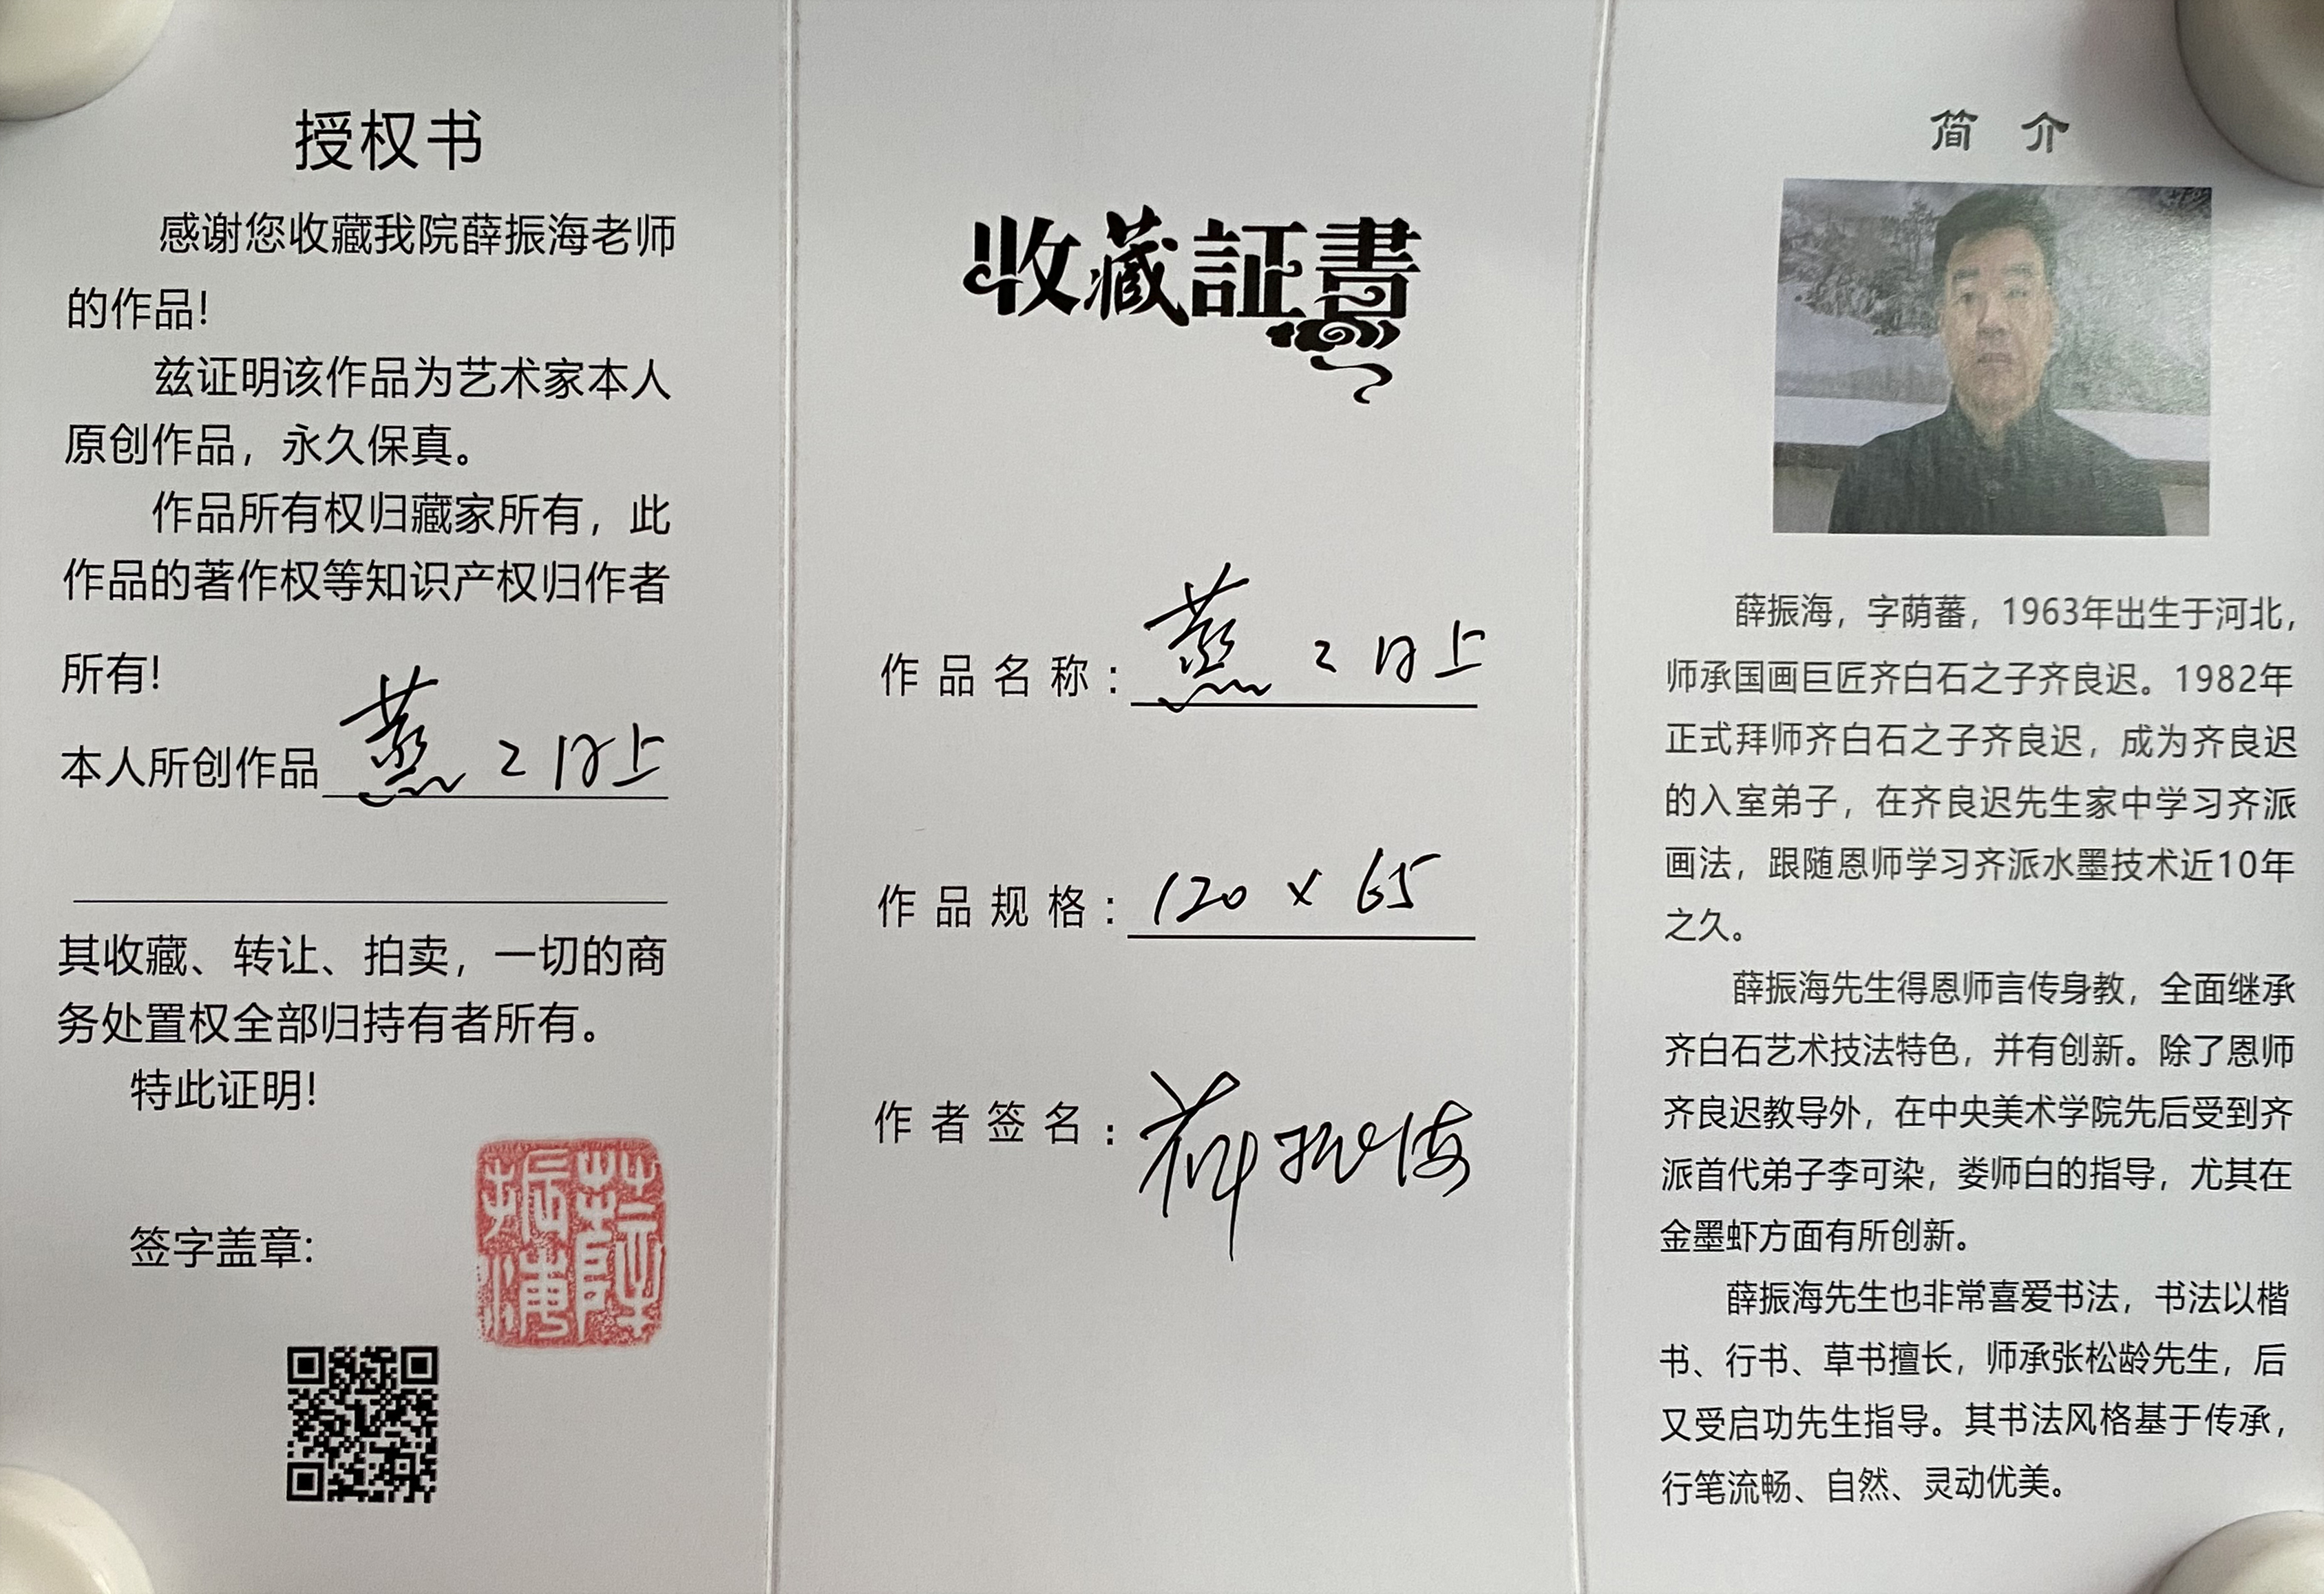 授权书
感谢您收藏我院薛振海老师
的作品!
兹证明该作品为艺术家本人
原创作品，永久保真。
作品所有权归藏家所有，此
作品的著作权等知识产权归作者
所有!
本人所创作品 蒸々日上
其收藏、转让、拍卖，一切的商
务处置权全部归持有者所有。
特此证明!
签字盖章:
薛振海
收藏証書
作品名称: 蒸々日上
作品规格: 120 × 65
作者签名: 薛振海
简 介
薛振海，字荫蕃，1963年出生于河北，
师承国画巨匠齐白石之子齐良迟。1982年
正式拜师齐白石之子齐良迟，成为齐良迟
的入室弟子，在齐良迟先生家中学习齐派
画法，跟随恩师学习齐派水墨技术近10年
之久。
薛振海先生得恩师言传身教，全面继承
齐白石艺术技法特色，并有创新。除了恩师
齐良迟教导外，在中央美术学院先后受到齐
派首代弟子李可染，娄师白的指导，尤其在
金墨虾方面有所创新。
薛振海先生也非常喜爱书法，书法以楷
书、行书、草书擅长，师承张松龄先生，后
又受启功先生指导。其书法风格基于传承，
行笔流畅、自然、灵动优美。